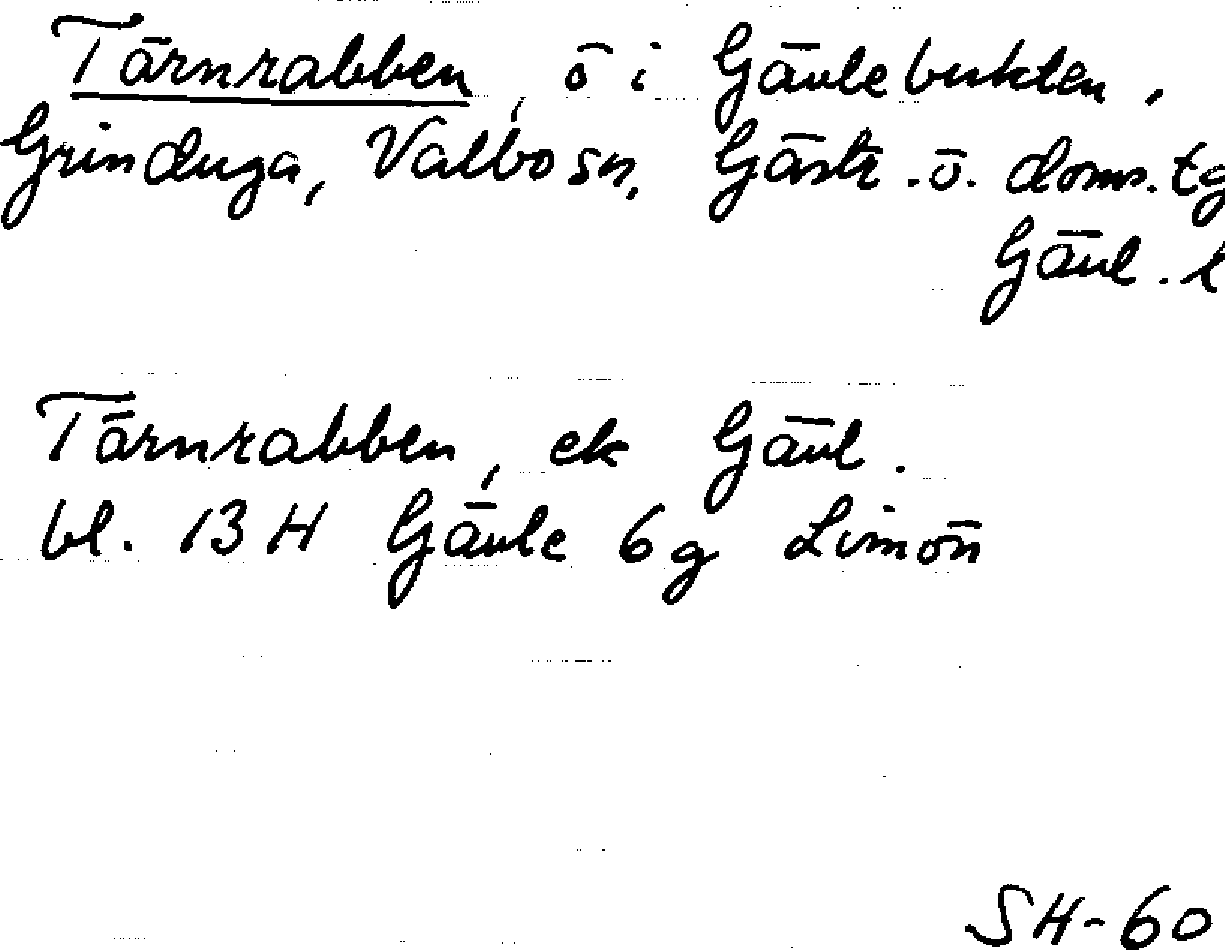 Tärnrabben, ö i Gävlebukten,
Grinduga, Valbo sn, Gästr. ö. doms. tg
Gävl. l
Tärnrabben, ek Gävl.
bl. 13 H Gävle 6g Limön
SH-60